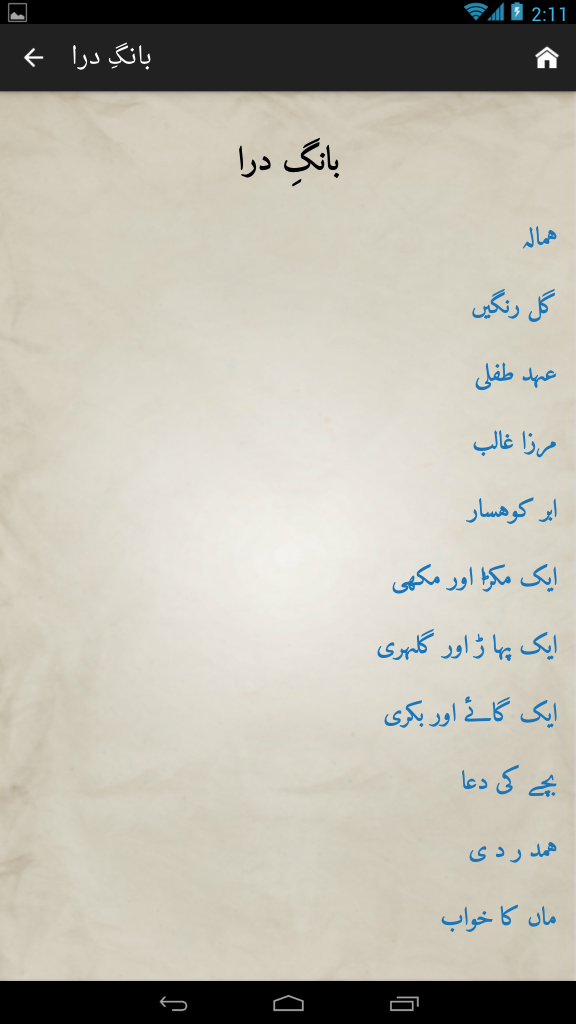 2:11
بانگِ درا
بانگِ درا
ھمالہ
گل رنگیں
عہد طفلی
مرزا غالب
ابر کوھسار
ایک مکڑا اور مکھی
ایک پہا ڑ اور گلہری
ایک گائے اور بکری
بچے کی دعا
ھمد ر د ی
ماں کا خواب